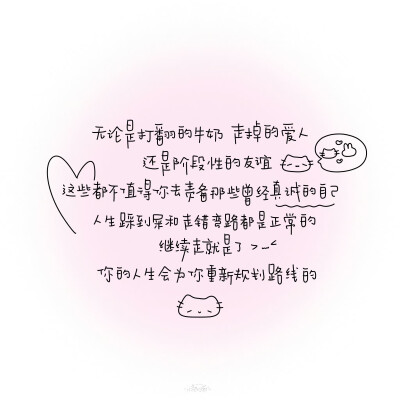 无论是打翻的牛奶 走掉的爱人
还是阶段性的友谊
这些都不值得你去责备那些曾经真诚的自己
人生踩到屎和走错弯路都是正常的
继续走就是了 >_<
你的人生会为你重新规划路线的